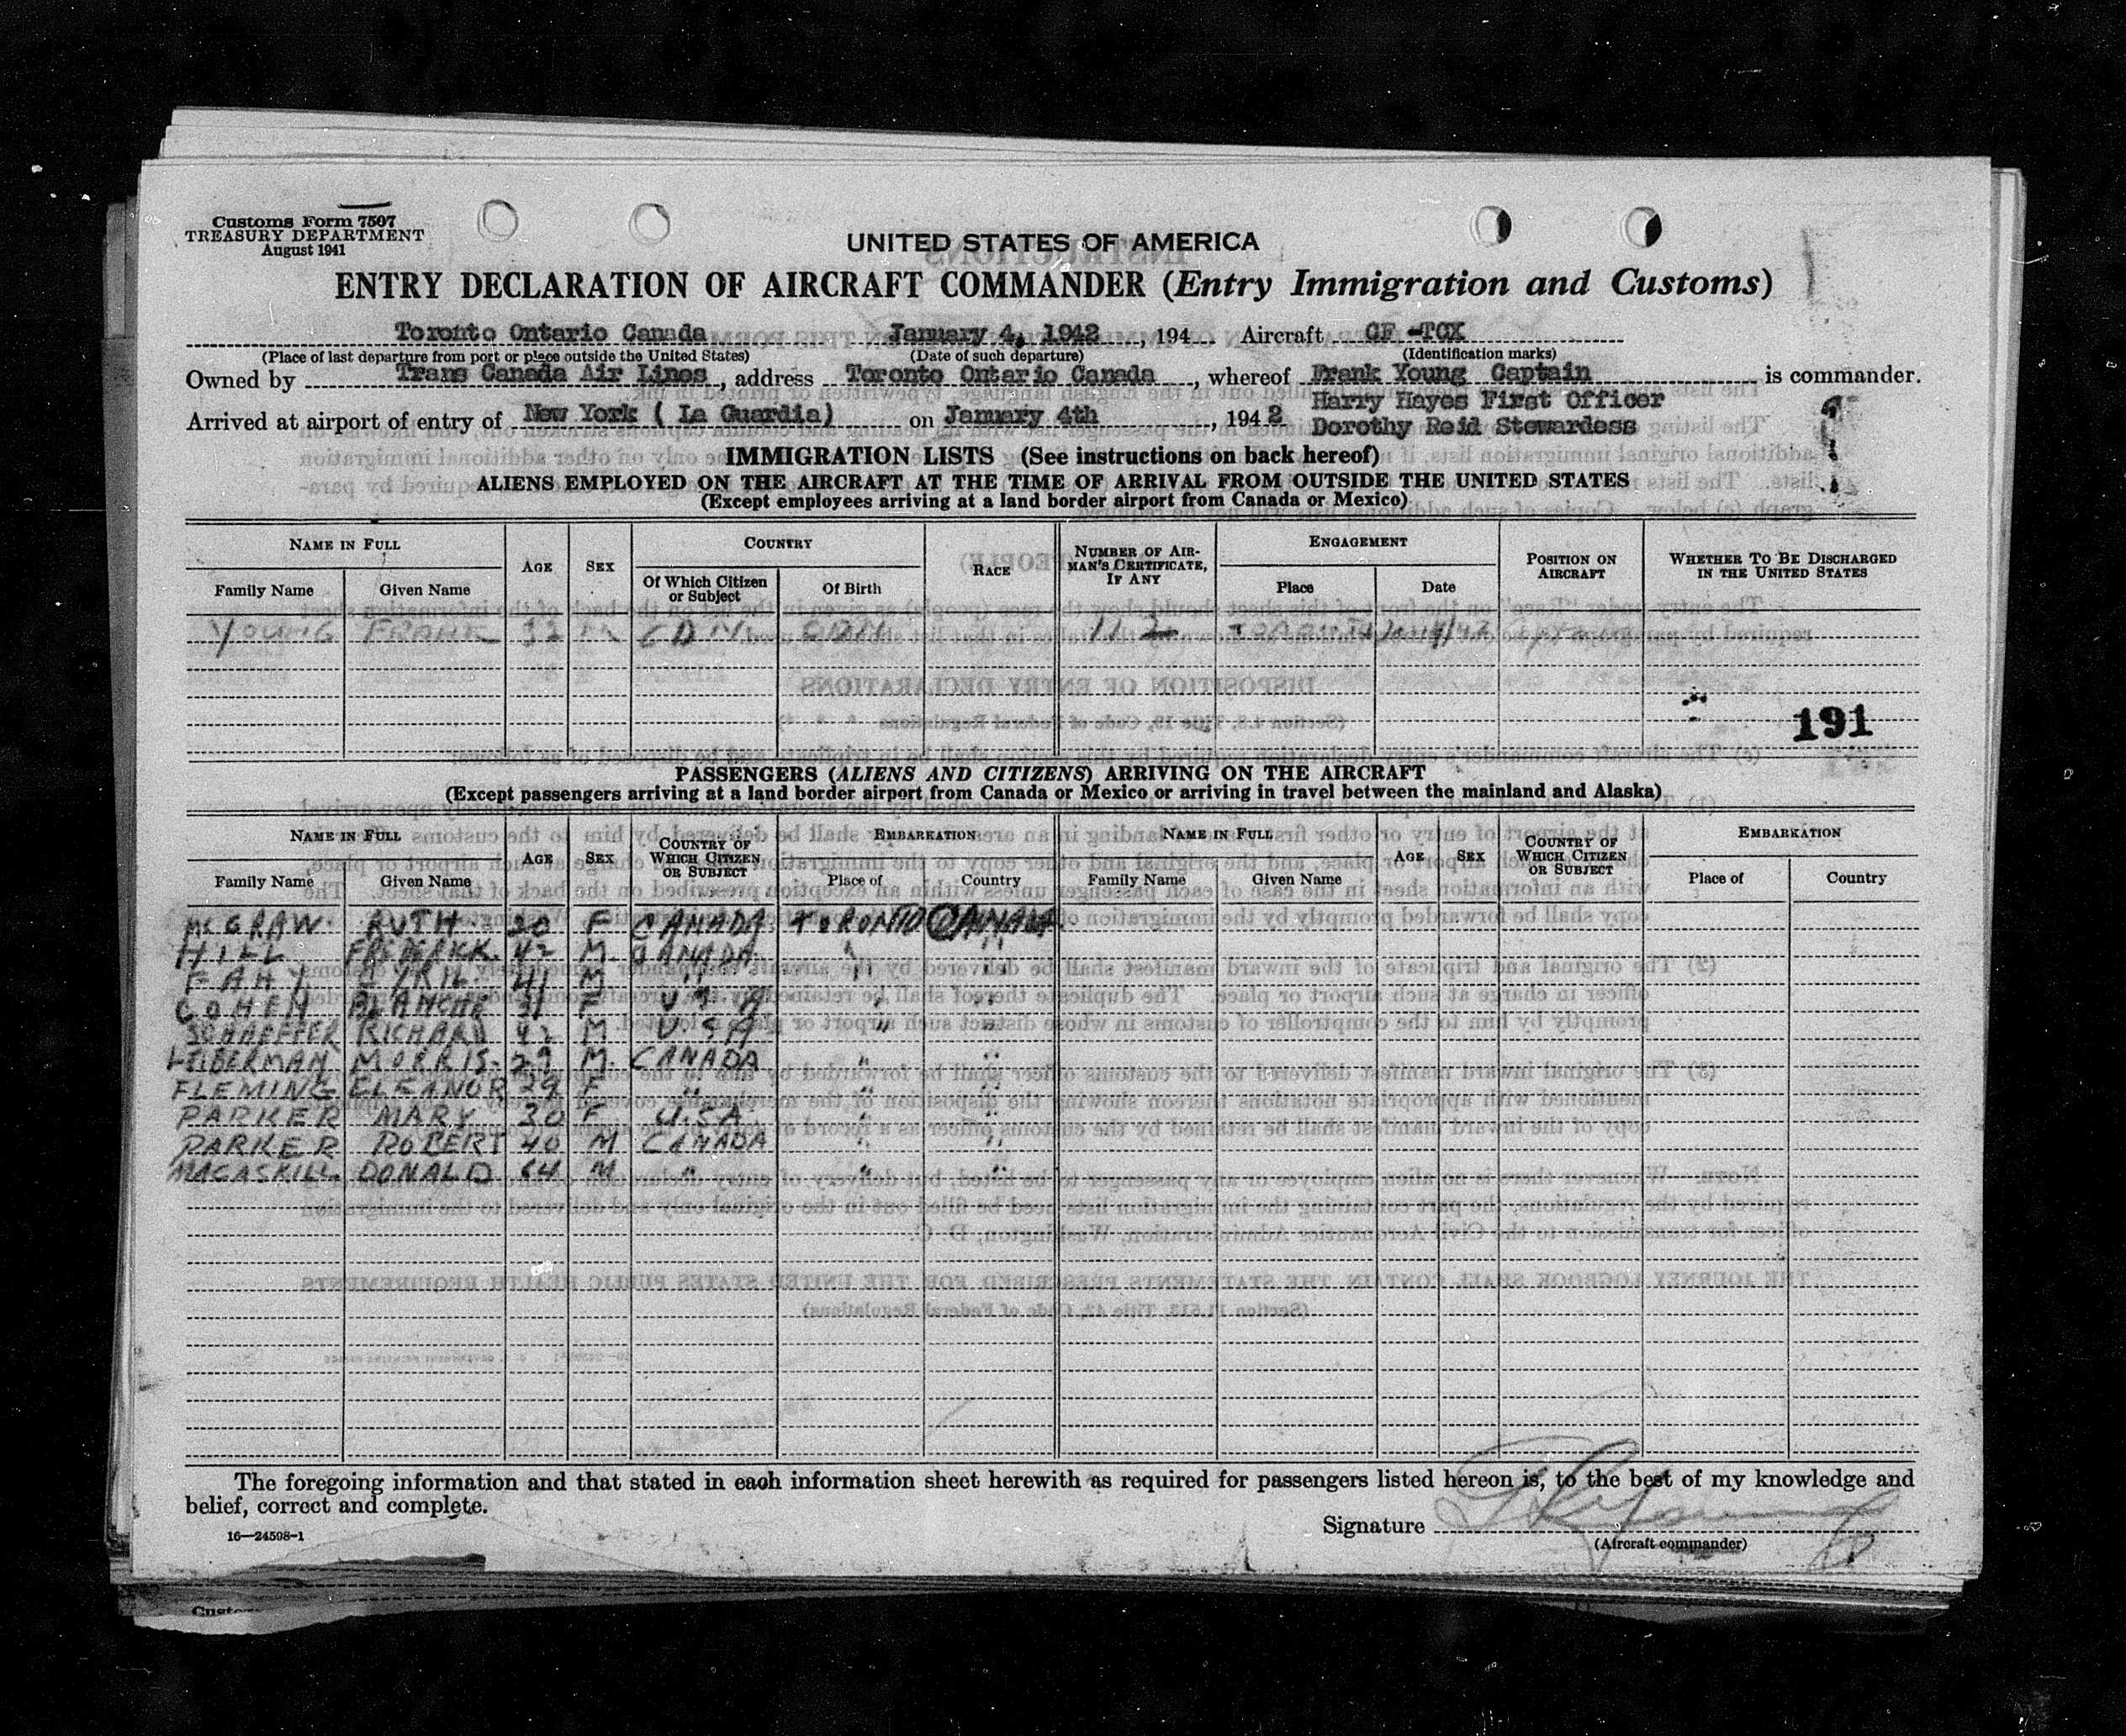 Customs Form 7507
TREASURY DEPARTMENT
August 1941
UNITED STATES OF AMERICA
ENTRY DECLARATION OF AIRCRAFT COMMANDER (Entry Immigration and Customs)
Toronto Ontario Canada January 4, 1942, 194 Aircraft CF -TCX
(Place of last departure from port or place outside the United States) (Date of such departure) (Identification marks)
Owned by Trans Canada Air Lines, address Toronto Ontario Canada, whereof Frank Young Captain is commander.
Harry Hayes First Officer
Arrived at airport of entry of New York ( La Guardia) on January 4th, 1942 Dorothy Reid Stewardess
IMMIGRATION LISTS (See instructions on back hereof)
ALIENS EMPLOYED ON THE AIRCRAFT AT THE TIME OF ARRIVAL FROM OUTSIDE THE UNITED STATES
(Except employees arriving at a land border airport from Canada or Mexico)
NAME IN FULL AGE SEX COUNTRY RACE NUMBER OF AIRMAN'S CERTIFICATE, IF ANY ENGAGEMENT POSITION ON AIRCRAFT WHETHER TO BE DISCHARGED IN THE UNITED STATES
Family Name Given Name Of Which Citizen or Subject Of Birth Place Date
YOUNG FRANK 32 M CDN CDN 112
191
PASSENGERS (ALIENS AND CITIZENS) ARRIVING ON THE AIRCRAFT
(Except passengers arriving at a land border airport from Canada or Mexico or arriving in travel between the mainland and Alaska)
NAME IN FULL AGE SEX COUNTRY OF WHICH CITIZEN OR SUBJECT EMBARKATION NAME IN FULL AGE SEX COUNTRY OF WHICH CITIZEN OR SUBJECT EMBARKATION
Family Name Given Name Place of Country Family Name Given Name Place of Country
McGRAW RUTH 20 F CANADA TORONTO CANADA
HILL FREDERICK 42 M CANADA " "
FAHY CYRIL 41 M " " "
COHEN BLANCHE 31 F U.S.A " "
SCHAEFFER RICHARD 42 M U S A " "
LEIBERMAN MORRIS 29 M CANADA " "
FLEMING ELEANOR 29 F " " "
PARKER MARY 30 F U.S.A " "
PARKER ROBERT 40 M CANADA " "
MACASKILL DONALD 64 M " " "
The foregoing information and that stated in each information sheet herewith as required for passengers listed hereon is, to the best of my knowledge and
belief, correct and complete.
Signature
16—24598-1
(Aircraft commander)